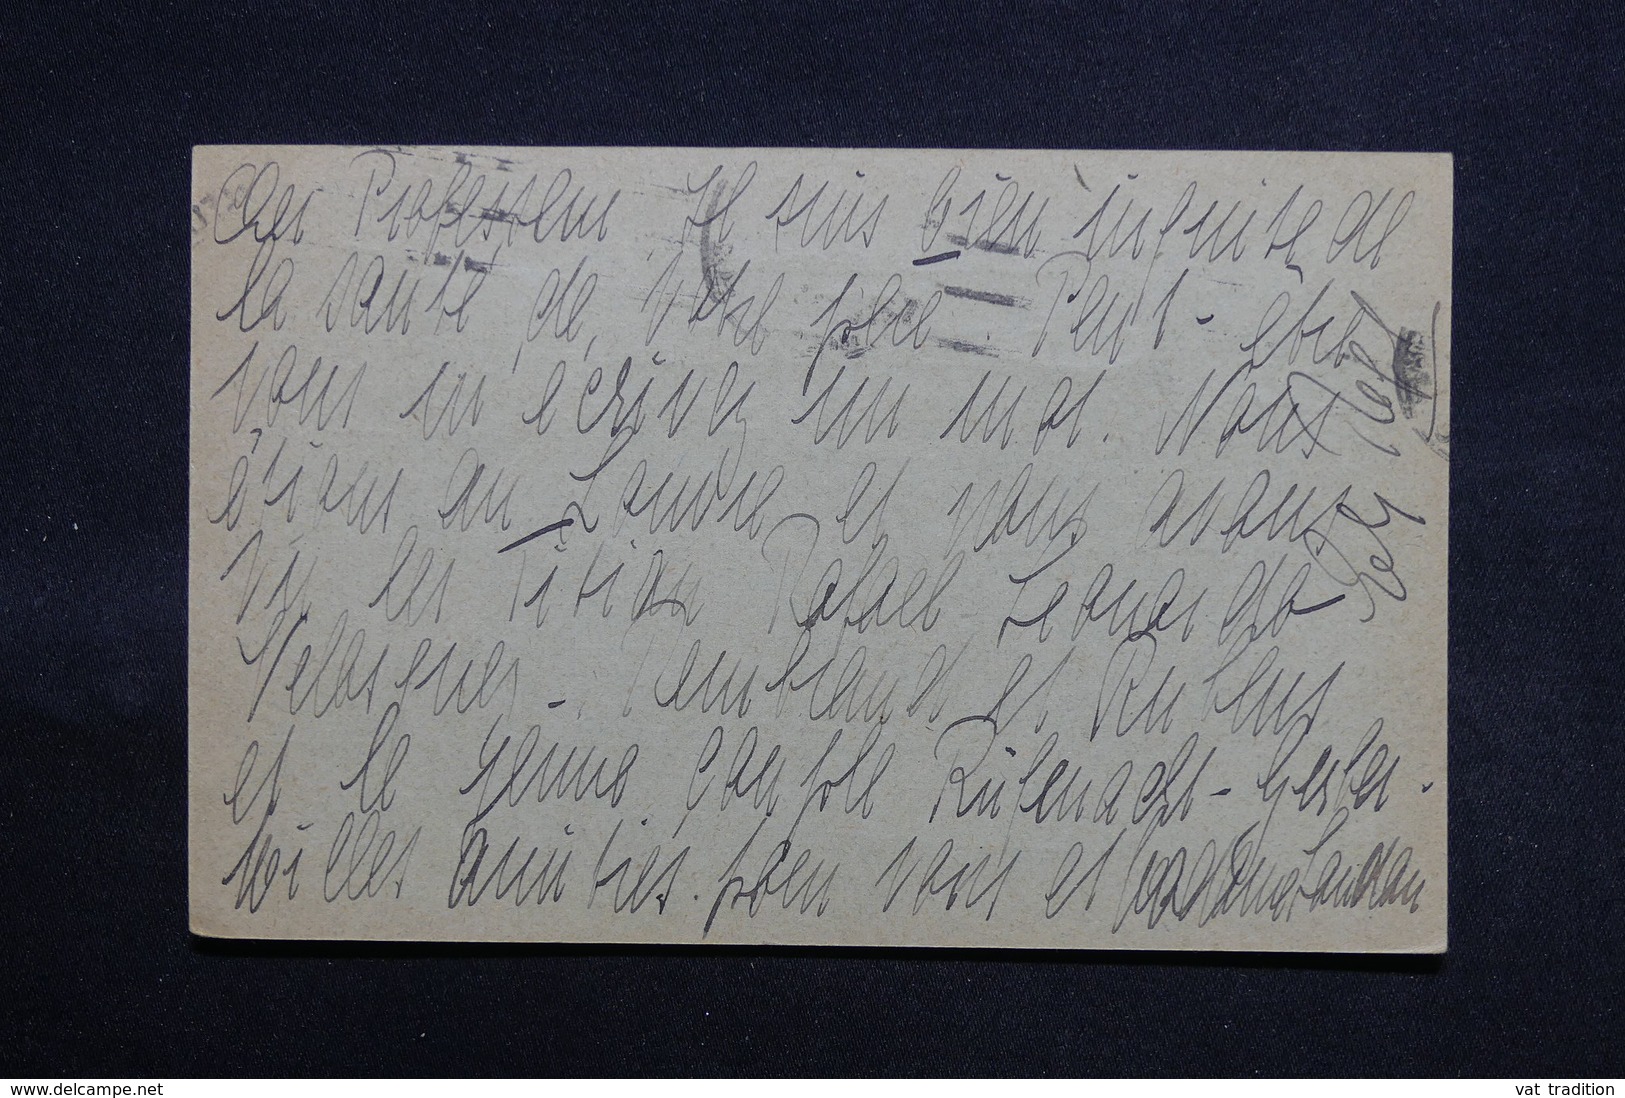 Cher Professeur Je suis bien inquiète de
la santé de votre père. Peut-être
vous m'écrivez un mot. Nous
étions au Louvre et nous avons
vu les Titian Rafael Leonardo
Velasques - Rembrandt et Rubens
et le
Rüfenacht-Gerber.
Milles amitiés pour vous et Madame Landau
www.delcampe.net
vat tradition